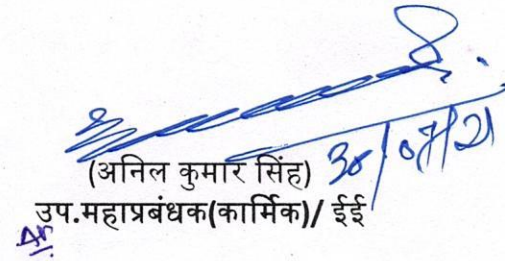 (अनिल कुमार सिंह) 30/07/21
उप.महाप्रबंधक(कार्मिक)/ ईई